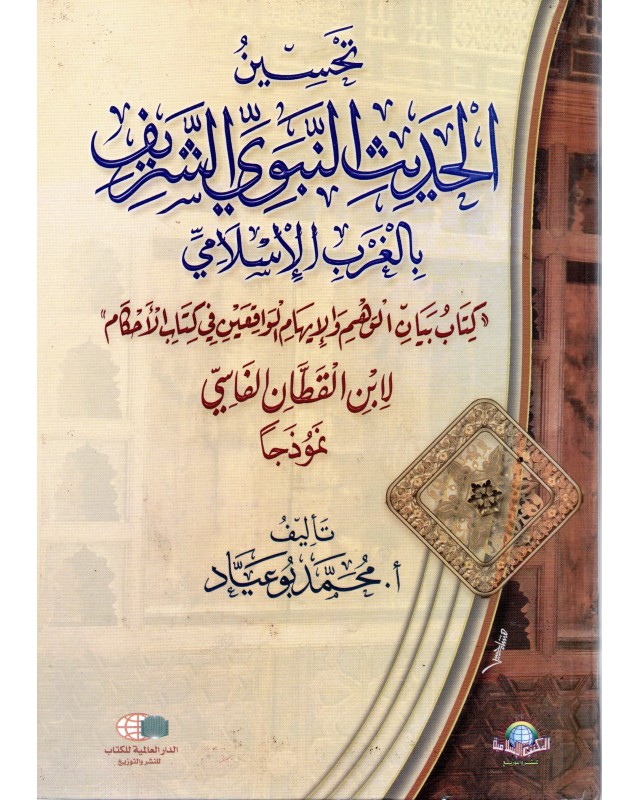 تَحْسِينُ
الحَدِيثِ النَّبَوِيِّ الشَّرِيفِ
بِالغَرْبِ الإِسْلَامِيِّ
«كِتَابُ بَيَانِ الوَهْمِ وَالإِيهَامِ الوَاقِعَيْنِ فِي كِتَابِ الأَحْكَامِ»
لِابْنِ القَطَّانِ الفَاسِيِّ
نَمُوذَجًا
تَأليفُ
أ. مُحَمَّد بُوعيَّاد
الدار العالمية للكتاب
للنشر والتوزيع
المكتبة الإسلامية
للنشر والتوزيع